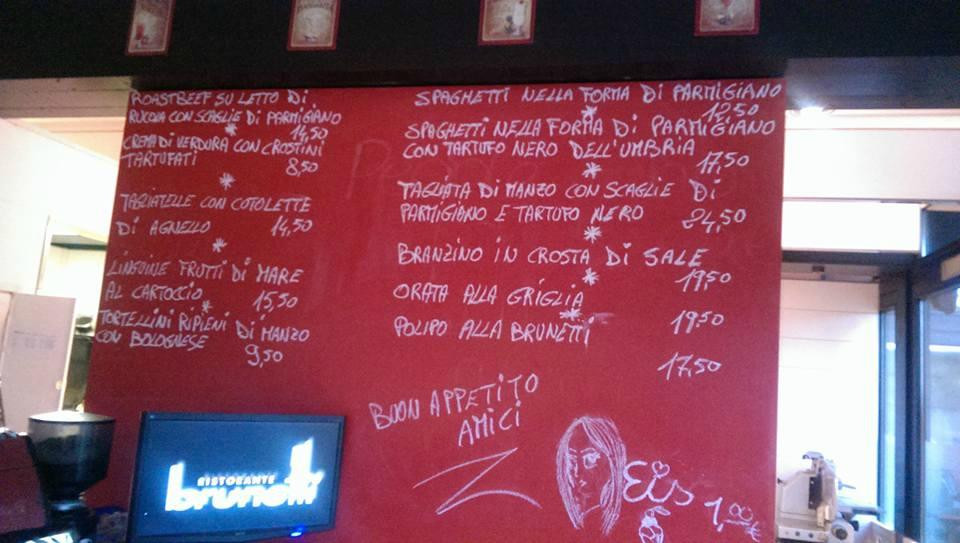 ROASTBEEF SU LETTO DI
RUCOLA CON SCAGLIE DI PARMIGIANO
14,50
CREMA DI VERDURA CON CROSTINI
TARTUFATI
8,50
TAGLIATELLE CON COTOLETTE
DI AGNELLO 14,50
LINGUINE FRUTTI DI MARE
AL CARTOCCIO 15,50
TORTELLINI RIPIENI DI MANZO
CON BOLOGNESE
9,50
SPAGHETTI NELLA FORMA DI PARMIGIANO
12,50
SPAGHETTI NELLA FORMA DI PARMIGIANO
CON TARTUFO NERO DELL'UMBRIA
17,50
TAGLIATA DI MANZO CON SCAGLIE DI
PARMIGIANO E TARTUFO NERO 24,50
BRANZINO IN CROSTA DI SALE
19,50
ORATA ALLA GRIGLIA
19,50
POLIPO ALLA BRUNETTI
17,50
BUON APPETITO
AMICI
Eis 1,00€
RISTORANTE
brunetti